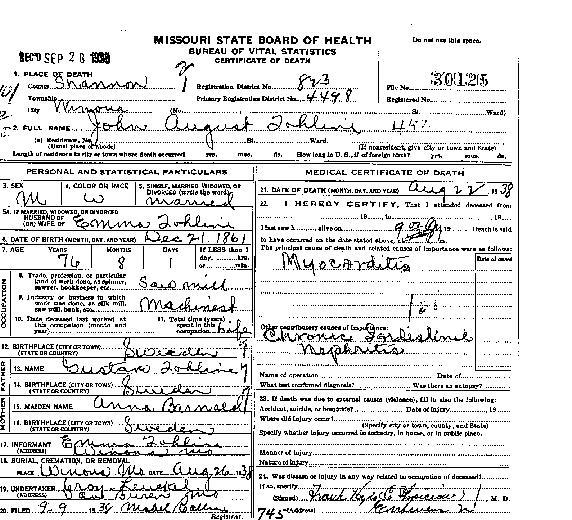 MISSOURI STATE BOARD OF HEALTH
Do not use this space.
BUREAU OF VITAL STATISTICS
CERTIFICATE OF DEATH
REC'D SEP 26 1938
1. PLACE OF DEATH
County Shannon
Registration District No. 823
File No. 30126
Township
Primary Registration District No. 4498
Registered No.
City Winona (No. St. Ward)
2. FULL NAME John August
(a) Residence, No. St. Ward.
(Usual place of abode)
(If nonresident, give city or town and State)
Length of residence in city or town where death occurred yrs. mos. ds. How long in U. S., if of foreign birth? yrs. mos. ds.
PERSONAL AND STATISTICAL PARTICULARS
3. SEX
4. COLOR OR RACE
5. SINGLE, MARRIED, WIDOWED, OR DIVORCED (write the word)
M W married
5A. IF MARRIED, WIDOWED, OR DIVORCED
HUSBAND OF
(OR) WIFE OF Emma
6. DATE OF BIRTH (MONTH, DAY, AND YEAR) Dec 21, 1861
7. AGE YEARS MONTHS DAYS If LESS than 1 day, hrs. or min.
76 8 1
OCCUPATION
8. Trade, profession, or particular kind of work done, as spinner, sawyer, bookkeeper, etc. Saw mill
9. Industry or business in which work was done, as silk mill, saw mill, bank, etc. Machinest
10. Date deceased last worked at this occupation (month and year)
11. Total time (years) spent in this occupation life
12. BIRTHPLACE (CITY OR TOWN) (STATE OR COUNTRY) Sweden
FATHER
13. NAME
14. BIRTHPLACE (CITY OR TOWN) (STATE OR COUNTRY) Sweden
MOTHER
15. MAIDEN NAME Anna
16. BIRTHPLACE (CITY OR TOWN) (STATE OR COUNTRY) Sweden
17. INFORMANT Emma
(ADDRESS) Winona Mo
18. BURIAL, CREMATION, OR REMOVAL
PLACE Winona Mo DATE Aug 26, 38
19. UNDERTAKER
(ADDRESS) Van Buren Mo
20. FILED 9-9 38 Mabel
Registrar
MEDICAL CERTIFICATE OF DEATH
21. DATE OF DEATH (MONTH, DAY, AND YEAR) Aug 22 1938
22. I HEREBY CERTIFY, That I attended deceased from
I last saw h alive on death is said
to have occurred on the date stated above
The principal cause of death and related causes of importance were as follows:
Date of onset
Myocarditis
Other contributory causes of importance:
Chronic
Nephritis
Name of operation Date of
What test confirmed diagnosis? Was there an autopsy?
23. If death was due to external causes (violence), fill in also the following:
Accident, suicide, or homicide? Date of injury 19
Where did injury occur?
(Specify city or town, county, and State)
Specify whether injury occurred in industry, in home, or in public place.
Manner of injury
Nature of injury
24. Was disease or injury in any way related to occupation of deceased?
If so, specify
(Signed) Frank M. D.
745 (Address)